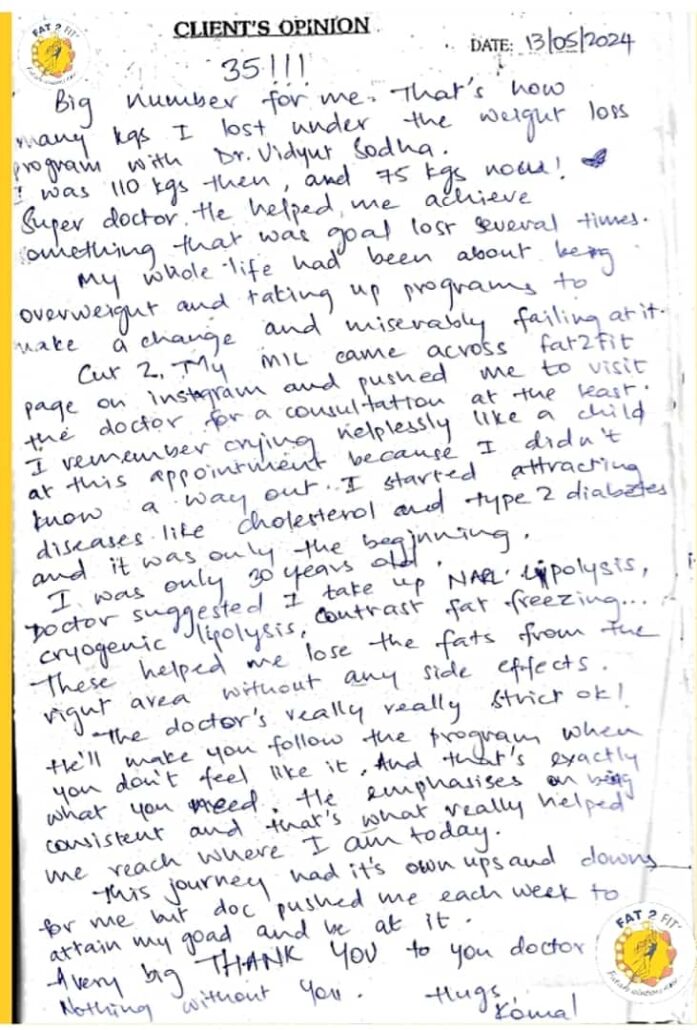 FAT 2 FIT
CLIENT'S OPINION
DATE: 13/05/2024
35!!!
Big number for me. That's how
many kgs I lost under the weight loss
program with Dr. Vidyut Sodha.
I was 110 kgs then, and 75 kgs now!
Super doctor. He helped me achieve
something that was goal lost several times.
My whole life had been about being
overweight and taking up programs to
make a change and miserably failing at it.
Cut 2. My MIL came across fat2fit
page on instgram and pushed me to visit
the doctor for a consultation at the least.
I remember crying helplessly like a child
at this appointment because I didn't
know a way out. I started attracting
diseases like cholesterol and type 2 diabetes
and it was only the beginning.
I was only 30 years old.
Doctor suggested I take up lipolysis,
cryogenic lipolysis, contrast fat freezing...
These helped me lose the fats from the
right area without any side effects.
The doctor's really really strict ok!
He'll make you follow the program when
you don't feel like it. And that's exactly
what you need. He emphasises on being
consistent and that's what really helped
me reach where I am today.
This journey had it's own ups and downs
for me but doc pushed me each week to
attain my goad and be at it.
A very big THANK YOU to you doctor
Nothing without you. Hugs
Komal
FAT 2 FIT